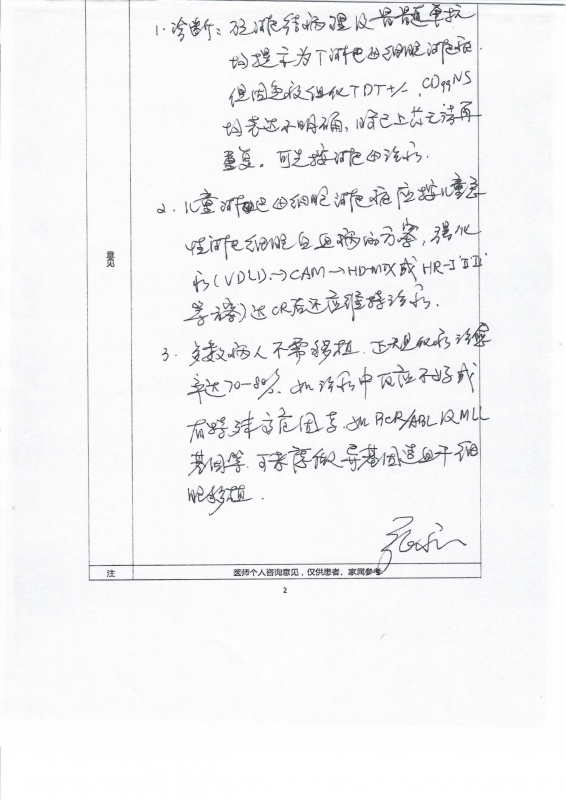 1. 诊断：颈淋巴结病理及骨髓单抗
均提示为T淋巴母细胞淋巴瘤.
但因免疫组化TDT+/-, CD99 NS
均表达不明确,
重复。可先按淋巴母治疗.
2. 儿童淋巴母细胞淋巴瘤应按儿童急
性淋巴细胞白血病的方案,
疗(VDLD)→CAM→HD-MTX或HR-
等)达CR后还应维持治疗.
意见
3. 多数病人不需移植.
率达70-80%. 如治疗中反应不好或
有特殊高危因素. 如BCR/ABL及MLL
基因等. 可考虑做异基因造血干细
胞移植.
注 医师个人咨询意见，仅供患者、家属参考
2